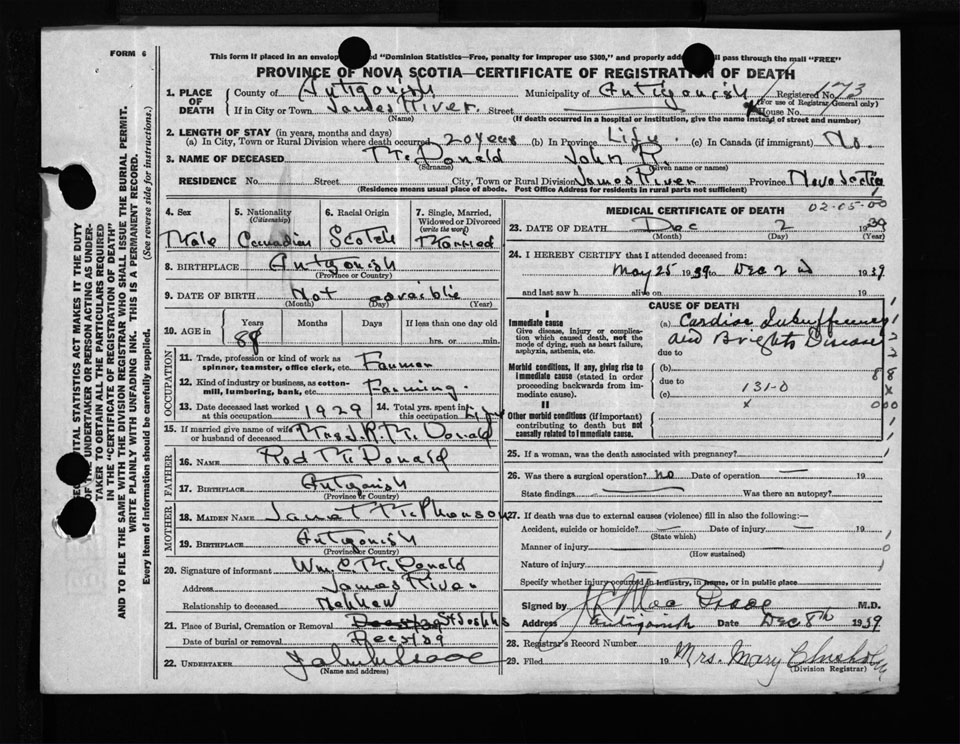 FORM 6
This form if placed in an envelop "Dominion Statistics—Free, penalty for improper use $300," and properly addressed will pass through the mail "FREE"
PROVINCE OF NOVA SCOTIA—CERTIFICATE OF REGISTRATION OF DEATH
1. PLACE OF DEATH County of Antigonish Municipality of Antigonish Registered No. 173
(For use of Registrar General only)
If in City or Town James River. Street House No.
(Name) (If death occurred in a hospital or institution, give the name instead of street and number)
2. LENGTH OF STAY (in years, months and days)
(a) In City, Town or Rural Division where death occurred 20 years (b) In Province Life. (c) In Canada (if immigrant) No.
3. NAME OF DECEASED McDonald John R.
(Surname) (Given name or names)
RESIDENCE No. Street City, Town or Rural Division James River Province Nova Scotia
(Residence means usual place of abode. Post Office Address for residents in rural parts not sufficient)
4. Sex 5. Nationality (Citizenship) 6. Racial Origin 7. Single, Married, Widowed or Divorced (write the word)
Male Canadian Scotch Married
8. BIRTHPLACE Antgonish
(Province or Country)
9. DATE OF BIRTH Not
(Month) (Day) (Year)
10. AGE in Years Months Days If less than one day old
88 hrs. or min.
OCCUPATION
11. Trade, profession or kind of work as spinner, teamster, office clerk, etc. Farmer
12. Kind of industry or business, as cotton-mill, lumbering, bank, etc. Farming.
13. Date deceased last worked at this occupation 1929 14. Total yrs. spent in this occupation
15. If married give name of wife or husband of deceased Mrs. J. R. McDonald
FATHER
16. NAME Rod McDonald
17. BIRTHPLACE Antgonish
(Province or Country)
MOTHER
18. MAIDEN NAME Janet McPherson
19. BIRTHPLACE Antigonish
(Province or Country)
20. Signature of informant Wm. C. McDonald
Address James River
Relationship to deceased Nephew
21. Place of Burial, Cremation or Removal St Josephs
Date of burial or removal Dec 5 1939
22. UNDERTAKER
(Name and address)
MEDICAL CERTIFICATE OF DEATH
02-05-00
23. DATE OF DEATH Dec 2 1939
(Month) (Day) (Year)
24. I HEREBY CERTIFY that I attended deceased from:
May 25 1939 to Dec 2nd 1939
and last saw h alive on 19
CAUSE OF DEATH
I
Immediate cause
Give disease, injury or complication which caused death, not the mode of dying, such as heart failure, asphyxia, asthenia, etc.
(a) Cardiac Insufficiency
and Brights Disease
due to
Morbid conditions, if any, giving rise to immediate cause (stated in order proceeding backwards from immediate cause).
(b)
due to
131-0
(c)
II
Other morbid conditions (if important) contributing to death but not causally related to immediate cause.
25. If a woman, was the death associated with pregnancy?
26. Was there a surgical operation? no Date of operation — 19
State findings Was there an autopsy?
27. If death was due to external causes (violence) fill in also the following:—
Accident, suicide or homicide? Date of injury 19
(State which)
Manner of injury
(How sustained)
Nature of injury
Specify whether injury occurred in industry, in home, or in public place
Signed by M.D.
Address Antigonish Date Dec 8th 1939
28. Registrar's Record Number
29. Filed 19 Mrs. Mary Chisholm
(Division Registrar)
VITAL STATISTICS ACT MAKES IT THE DUTY
OF THE UNDERTAKER OR PERSON ACTING AS UNDERTAKER TO OBTAIN ALL THE PARTICULARS REQUIRED
IN THE "CERTIFICATE OF REGISTRATION OF DEATH"
AND TO FILE THE SAME WITH THE DIVISION REGISTRAR WHO SHALL ISSUE THE BURIAL PERMIT.
WRITE PLAINLY WITH UNFADING INK. THIS IS A PERMANENT RECORD.
Every item of Information should be carefully supplied. (See reverse side for instructions.)